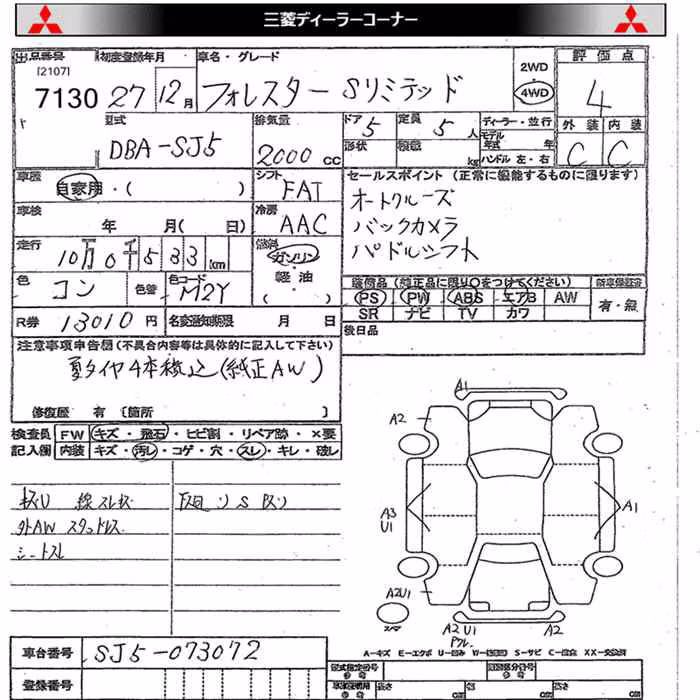 三菱ディーラーコーナー
出品番号 初度登録年月 車名・グレード 2WD 評価点
[2107]
7130 27年 12月 フォレスター Sリミテッド 4WD 4
型式 排気量 ドア 定員 ディーラー・並行 外装 内装
DBA-SJ5 2000cc 5 5人 モデル年式 年 C C
形状 積載 kg ハンドル 左・右
車歴 自家用・( ) シフト FAT セールスポイント (正常に機能するものに限ります)
車検 年 月( 日) 冷房 AAC オートクルーズ
バックカメラ
走行 10万0千533km 燃料 ガソリン・軽油・( ) パドルシフト
色 コン 色替 色コード M2Y 装備品 (純正品に限り○をつけてください) 新車保証書
PS PW ABS エアB AW 有・無
R券 13010円 名変通知期限 月 日 SR ナビ TV カワ
後日品
注意事項申告欄(不具合内容等は具体的に記入して下さい)
夏タイヤ4本積込(純正AW)
修復歴 有 〔箇所 〕
検査員 FW キズ・飛石・ヒビ割・リペア跡・×要
記入欄 内装 キズ・汚レ・コゲ・穴・スレ・キレ・破レ
線スレキズ
外AW スタッドレス
シートスレ
A1
A2
A3
U1
A1
A2U1
A2 U1 A2
A=キズ E=エクボ U=凹ミ S=サビ C=腐食 XX=交換済
車台番号 SJ5-073072
登録番号
型式指定番号 類別区分番号
長さ cm 幅 cm 高さ cm